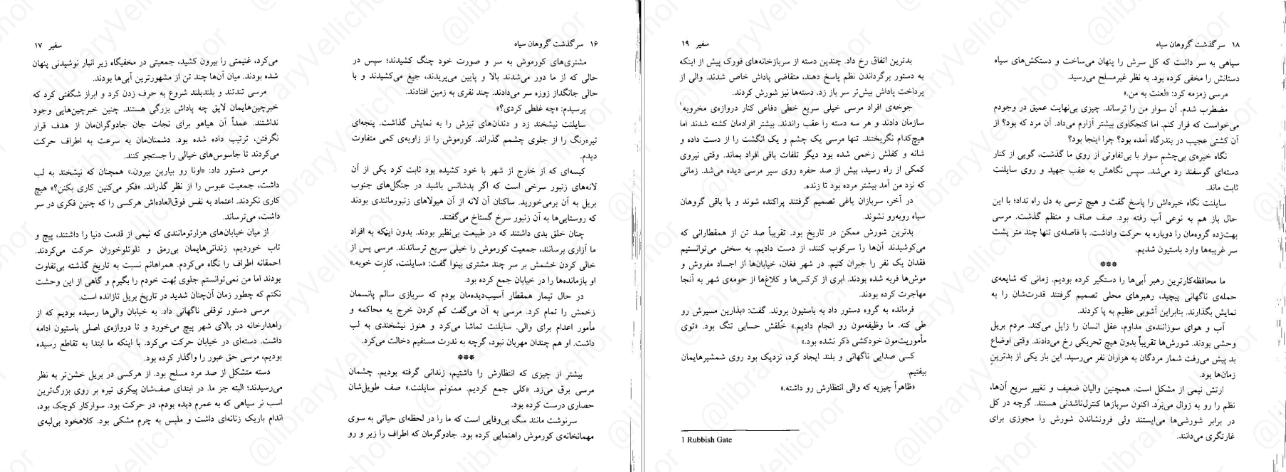 ۱۶ سرگذشت گروهان سیاه
مشتری‌های کورموش به سر و صورت خود چنگ کشیدند؛ سپس در
حالی که از ما دور می‌شدند بالا و پایین می‌پریدند، جیغ می‌کشیدند و با
حالی جانگداز زوزه سر می‌دادند. چند نفری به زمین افتادند.
پرسیدم: «چه غلطی کردی؟»
سایلنت نیشخند زد و دندان‌های تیزش را به نمایش گذاشت. پنجه‌ای
تیره‌رنگ را از جلوی چشمم گذراند. کورموش را از زاویه‌ی کمی متفاوت
دیدم.
کیسه‌ای که از خارج از شهر با خود کشیده بود ثابت کرد یکی از آن
لانه‌های زنبور سرخی است که اگر بدشانس باشید در جنگل‌های جنوب
بریل به آن برمی‌خورید. ساکنان آن لانه از آن هیولاهای زنبورمانندی بودند
که روستایی‌ها به آن زنبور سرخ گستاخ می‌گفتند.
چنان خلق بدی داشتند که در طبیعت بی‌نظیر بودند. بدون اینکه به افراد
ما آزاری برسانند، جمعیت کورموش را خیلی سریع ترساندند. مرسی پس از
خالی کردن خشمش بر سر چند مشتری بینوا گفت: «سایلنت، کارت خوبه.»
او بازمانده‌ها را در خیابان جمع کرده بود.
در حال تیمار همقطار آسیب‌دیده‌مان بودم که سربازی سالم پانسمان
زخمش را تمام کرد. مرسی به آن می‌گفت کم کردن خرج یه محاکمه و
مأمور اعدام برای والی. سایلنت تماشا می‌کرد و هنوز نیشخندی به لب
داشت. او هم چندان مهربان نبود، گرچه به ندرت مستقیم دخالت می‌کرد.
***
بیشتر از چیزی که انتظارش را داشتیم، زندانی گرفته بودیم. چشمان
مرسی برق می‌زد. «کلی جمع کردیم. ممنونم سایلنت.» صف طویل‌شان
حصاری درست کرده بود.
سرنوشت مانند سگ بی‌وفایی است که ما را در لحظه‌ای حیاتی به سوی
مهمانخانه‌ی کورموش راهنمایی کرده بود. جادوگرمان که اطراف را زیر و رو
سفیر ۱۷
می‌کرد، غنیمتی را بیرون کشید، جمعیتی در مخفیگاه زیر انبار نوشیدنی پنهان
شده بودند. میان آن‌ها چند تن از مشهورترین آبی‌ها بودند.
مرسی تندتند و بلندبلند شروع به حرف زدن کرد و ابراز شگفتی کرد که
خبرچین‌هایمان لایق چه پاداش بزرگی هستند. چنین خبرچین‌هایی وجود
نداشتند. عمداً آن هیاهو برای نجات جان جادوگران‌مان از هدف قرار
نگرفتن، ترتیب داده شده بود. دشمنان‌مان به سرعت به اطراف حرکت
می‌کردند تا جاسوس‌های خیالی را جستجو کنند.
مرسی دستور داد: «اونا رو بیارین بیرون.» همچنان که نیشخند به لب
داشت، جمعیت عبوس را از نظر گذراند. «فکر می‌کنین کاری بکنن؟» هیچ
کاری نکردند. اعتماد به نفس فوق‌العاده‌اش هرکسی را که چنین فکری در سر
داشت، می‌ترساند.
از میان خیابان‌های هزارتومانندی که نیمی از قدمت دنیا را داشتند، پیچ و
تاب خوردیم، زندانی‌هایمان بی‌رمق و تلوتلوخوران حرکت می‌کردند.
احمقانه اطراف را نگاه می‌کردم. همراهانم نسبت به تاریخ گذشته بی‌تفاوت
بودند اما من نمی‌توانستم جلوی بُهت خودم را بگیرم و گاهی از این وحشت
نکنم که چطور زمان آن‌چنان شدید در تاریخ بریل تازانده است.
مرسی دستور توقفی ناگهانی داد. به خیابان والی‌ها رسیده بودیم که از
راهدارخانه در بالای شهر پیچ می‌خورد و تا دروازه‌ی اصلی باستیون ادامه
داشت. دسته‌ای در خیابان حرکت می‌کرد. با اینکه ما ابتدا به تقاطع رسیده
بودیم، مرسی حق عبور را واگذار کرده بود.
دسته متشکل از صد مرد مسلح بود. از هرکسی در بریل خشن‌تر به نظر
می‌رسیدند؛ البته جز ما. در ابتدای صف‌شان پیکری تیره بر روی بزرگ‌ترین
اسب نر سیاهی که به عمرم دیده بودم، در حرکت بود. سوارکار کوچک بود،
اندام باریک زنانه‌ای داشت و ملبس به چرم مشکی بود. کلاهخود بی‌لبه‌ی
۱۸ سرگذشت گروهان سیاه
سیاهی به سر داشت که کل سرش را پنهان می‌ساخت و دستکش‌های سیاه
دستانش را مخفی کرده بود. به نظر غیرمسلح می‌رسید.
مرسی زمزمه کرد: «لعنت به من.»
مضطرب شدم. آن سوار من را ترساند. چیزی بی‌نهایت عمیق در وجودم
می‌خواست که فرار کنم. اما کنجکاوی بیشتر آزارم می‌داد. آن مرد که بود؟ از
آن کشتی عجیب در بندرگاه آمده بود؟ چرا اینجا بود؟
نگاه خیره‌ی بی‌چشم سوار با بی‌تفاوتی از روی ما گذشت، گویی از کنار
دسته‌ای گوسفند رد می‌شد. سپس نگاهش به عقب جهید و روی سایلنت
ثابت ماند.
سایلنت نگاه خیره‌اش را پاسخ گفت و هیچ ترسی به دل راه نداد؛ با این
حال باز هم به نوعی آب رفته بود. صف صاف و منظم گذشت. مرسی
بهت‌زده گروه‌مان را دوباره به حرکت واداشت. با فاصله‌ی تنها چند متر پشت
سر غریبه‌ها وارد باستیون شدیم.
***
ما محافظه‌کارترین رهبر آبی‌ها را دستگیر کرده بودیم. زمانی که شایعه‌ی
حمله‌ی ناگهانی پیچید، رهبرهای محلی تصمیم گرفتند قدرت‌شان را به
نمایش بگذارند. بنابراین آشوبی عظیم به پا کردند.
آب و هوای سوزاننده‌ی مداوم، عقل انسان را زایل می‌کند. مردم بریل
وحشی بودند. شورش‌ها تقریباً بدون هیچ تحریکی رخ می‌دادند. وقتی اوضاع
بد پیش می‌رفت شمار مردگان به هزاران نفر می‌رسید. این بار یکی از بدترین
زمان‌ها بود.
ارتش نیمی از مشکل است. همچنین والیان ضعیف و تغییر سریع آن‌ها،
نظم را رو به زوال می‌بَرَد. اکنون سربازها کنترل‌ناشدنی هستند. گرچه در کل
در برابر شورشی‌ها می‌ایستند ولی فرونشاندن شورش را مجوزی برای
غارتگری می‌دانند.
سفیر ۱۹
بدترین اتفاق رخ داد. چندین دسته از سربازخانه‌های فورک پیش از اینکه
به دستور برگرداندن نظم پاسخ دهند، متقاضی پاداش خاص شدند. والی از
پرداخت پاداش بیش‌تر سر باز زد. دسته‌ها نیز شورش کردند.
جوخه‌ی افراد مرسی خیلی سریع خطی دفاعی کنار دروازه‌ی مخروبه¹
سازمان دادند و هر سه دسته را عقب راندند. بیشتر افرادمان کشته شدند اما
هیچ‌کدام نگریختند. تنها مرسی یک چشم و یک انگشت را از دست داده و
شانه و کفلش زخمی شده بود دیگر تلفات باقی افراد بماند. وقتی نیروی
کمکی از راه رسید، بیش از صد حفره روی سپر مرسی دیده می‌شد. زمانی
که نزد من آمد بیشتر مرده بود تا زنده.
در آخر، سربازان یاغی تصمیم گرفتند پراکنده شوند و با باقی گروهان
سیاه روبه‌رو نشوند.
بدترین شورش ممکن در تاریخ بود. تقریباً صد تن از همقطارانی که
می‌کوشیدند آن‌ها را سرکوب کنند، از دست دادیم. به سختی می‌توانستیم
فقدان یک نفر را جبران کنیم. در شهر فغان، خیابان‌ها از اجساد مفروش و
موش‌ها فربه شده بودند. ابری از کرکس‌ها و کلاغ‌ها از حومه‌ی شهر به آنجا
مهاجرت کرده بودند.
فرمانده به گروه دستور داد به باستیون بروند. گفت: «بذارین مسیرش رو
طی کنه. ما وظیفه‌مون رو انجام دادیم.» خُلقش حسابی تنگ بود. «توی
مأموریت‌مون خودکشی ذکر نشده بود.»
کسی صدایی ناگهانی و بلند ایجاد کرد، نزدیک بود روی شمشیرهایمان
بیفتیم.
«ظاهراً چیزیه که والی انتظارش رو داشته.»
1 Rubbish Gate
@libraryVellichor